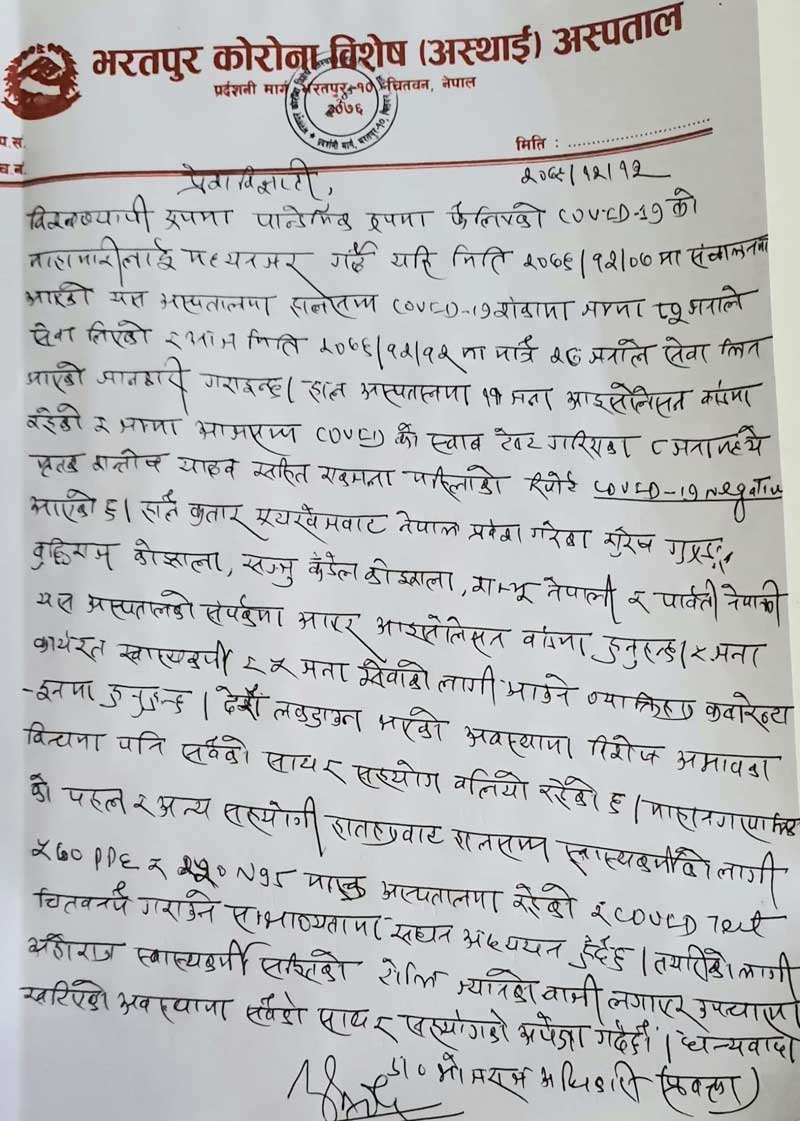 भरतपुर कोरोना विशेष (अस्थाई) अस्पताल
प्रदर्शनी मार्ग भरतपुर-१० चितवन, नेपाल
२०७६
प.स.
च.नं.
मिति :
२०७६/१२/१२
विश्वव्यापी रुपमा रुपमा फैलिएको COVID-19 को
माहामारीलाई मध्यनजर गर्दै यहि मिति २०७६/१२/०७ मा
आएको यस अस्पतालमा हालसम्म COVID-19 शंकामा जम्मा जनाले
सेवा लिएको र आज मिति २०७६/१२/१२ मा मात्रै २७ जनाले सेवा लिन
आएको जानकारी गराइन्छ। हाल अस्पतालमा ११ जना आइसोलेसन
रहेको र जम्मा आजसम्म COVID को स्वाब टेस्ट गरिएका ८ जना मध्ये
मृतक यादव सहित एकजना महिलाको रिपोर्ट COVID-19 Negative
आएको छ। हालै कतार बाट नेपाल प्रवेश गरेका सुरेश गुरुङ,
कोइराला, कँडेल कोइराला, शम्भू नेपाली र पार्वती नेपाली
यस अस्पतालको संपर्कमा आएर आइसोलेसन हुनुहुन्छ। जना
कार्यरत स्वास्थ्यकर्मी र जना सेवाको लागी आउने
-इनमा हुनुहुन्छ। लकडाउन भएको अवस्थामा अभावका
विचमा पनि सबैको साथ र सहयोग बलियो रहेको छ।
को पहल र अन्य सहयोगी हातहरुबाट हालसम्म स्वास्थ्यकर्मीको लागी
PPE र N95 मास्क अस्पतालमा रहेको र COVID Test
चितवनमै गराउने सम्भाव्यतामा अध्ययन हुँदैछ। तयारीको लागी
अहोरात्र स्वास्थ्यकर्मी सहितको टोलि ज्यानको बाजी लगाएर उपचारमा
खटिएको अवस्थामा सबैको साथ र सहयोगको अपेक्षा गर्दछौं। धन्यवाद।
डा० भोजराज अधिकारी (प्रवक्ता)